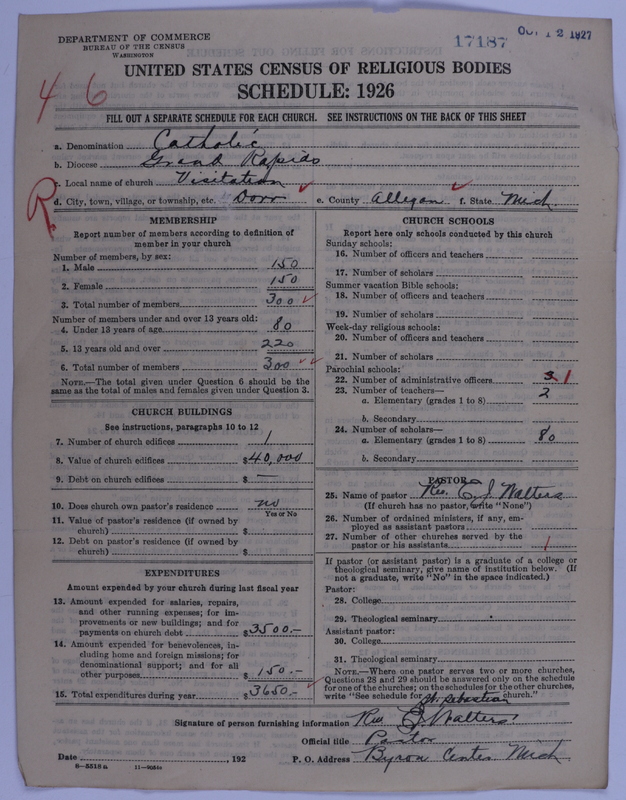 DEPARTMENT OF COMMERCE
BUREAU OF THE CENSUS
WASHINGTON
17187
OCT 12 1927
UNITED STATES CENSUS OF RELIGIOUS BODIES
SCHEDULE: 1926
4 6
FILL OUT A SEPARATE SCHEDULE FOR EACH CHURCH. SEE INSTRUCTIONS ON THE BACK OF THIS SHEET
a. Denomination Catholic
b. Diocese Grand Rapids
c. Local name of church Visitation
R.
d. City, town, village, or township, etc. Dorr e. County Allegan f. State Mich.
MEMBERSHIP
Report number of members according to definition of
member in your church
Number of members, by sex:
1. Male 150
2. Female 150
3. Total number of members 300
Number of members under and over 13 years old:
4. Under 13 years of age 80
5. 13 years old and over 220
6. Total number of members 300
NOTE.—The total given under Question 6 should be
same as the total of males and females given under Question 3.
CHURCH BUILDINGS
See instructions, paragraphs 10 to 12
7. Number of church edifices 1
8. Value of church edifices $40,000
9. Debt on church edifices $ —
10. Does church own pastor's residence no
Yes or No
11. Value of pastor's residence (if owned by
church) $
12. Debt on pastor's residence (if owned by
church) $
EXPENDITURES
Amount expended by your church during last fiscal year
13. Amount expended for salaries, repairs,
and other running expenses; for im-
provements or new buildings; and for
payments on church debt $3500.-
14. Amount expended for benevolences, in-
cluding home and foreign missions; for
denominational support; and for all
other purposes $150.-
15. Total expenditures during year $3650.-
CHURCH SCHOOLS
Report here only schools conducted by this church
Sunday schools:
16. Number of officers and teachers
17. Number of scholars
Summer vacation Bible schools:
18. Number of officers and teachers
19. Number of scholars
Week-day religious schools:
20. Number of officers and teachers
21. Number of scholars
Parochial schools:
22. Number of administrative officers 1
23. Number of teachers—
a. Elementary (grades 1 to 8) 2
b. Secondary
24. Number of scholars—
a. Elementary (grades 1 to 8) 80
b. Secondary
PASTOR
25. Name of pastor Rev. J. Walters
(If church has no pastor, write "None")
26. Number of ordained ministers, if any, em-
ployed as assistant pastors
27. Number of other churches served by the
pastor or his assistants 1
If pastor (or assistant pastor) is a graduate of a college or
theological seminary, give name of institution below. (If
not a graduate, write "No" in the space indicated.)
Pastor:
28. College
29. Theological seminary
Assistant pastor:
30. College
31. Theological seminary
NOTE.—Where one pastor serves two or more churches,
Questions 28 and 29 should be answered only on the schedule
for one of the churches; on the schedules for the other churches,
write "See schedule for St. Sebastian church."
Signature of person furnishing information Rev. J. Walters
Official title Pastor
Date , 192 P. O. Address Byron Center Mich
8-5518a 11-9034c